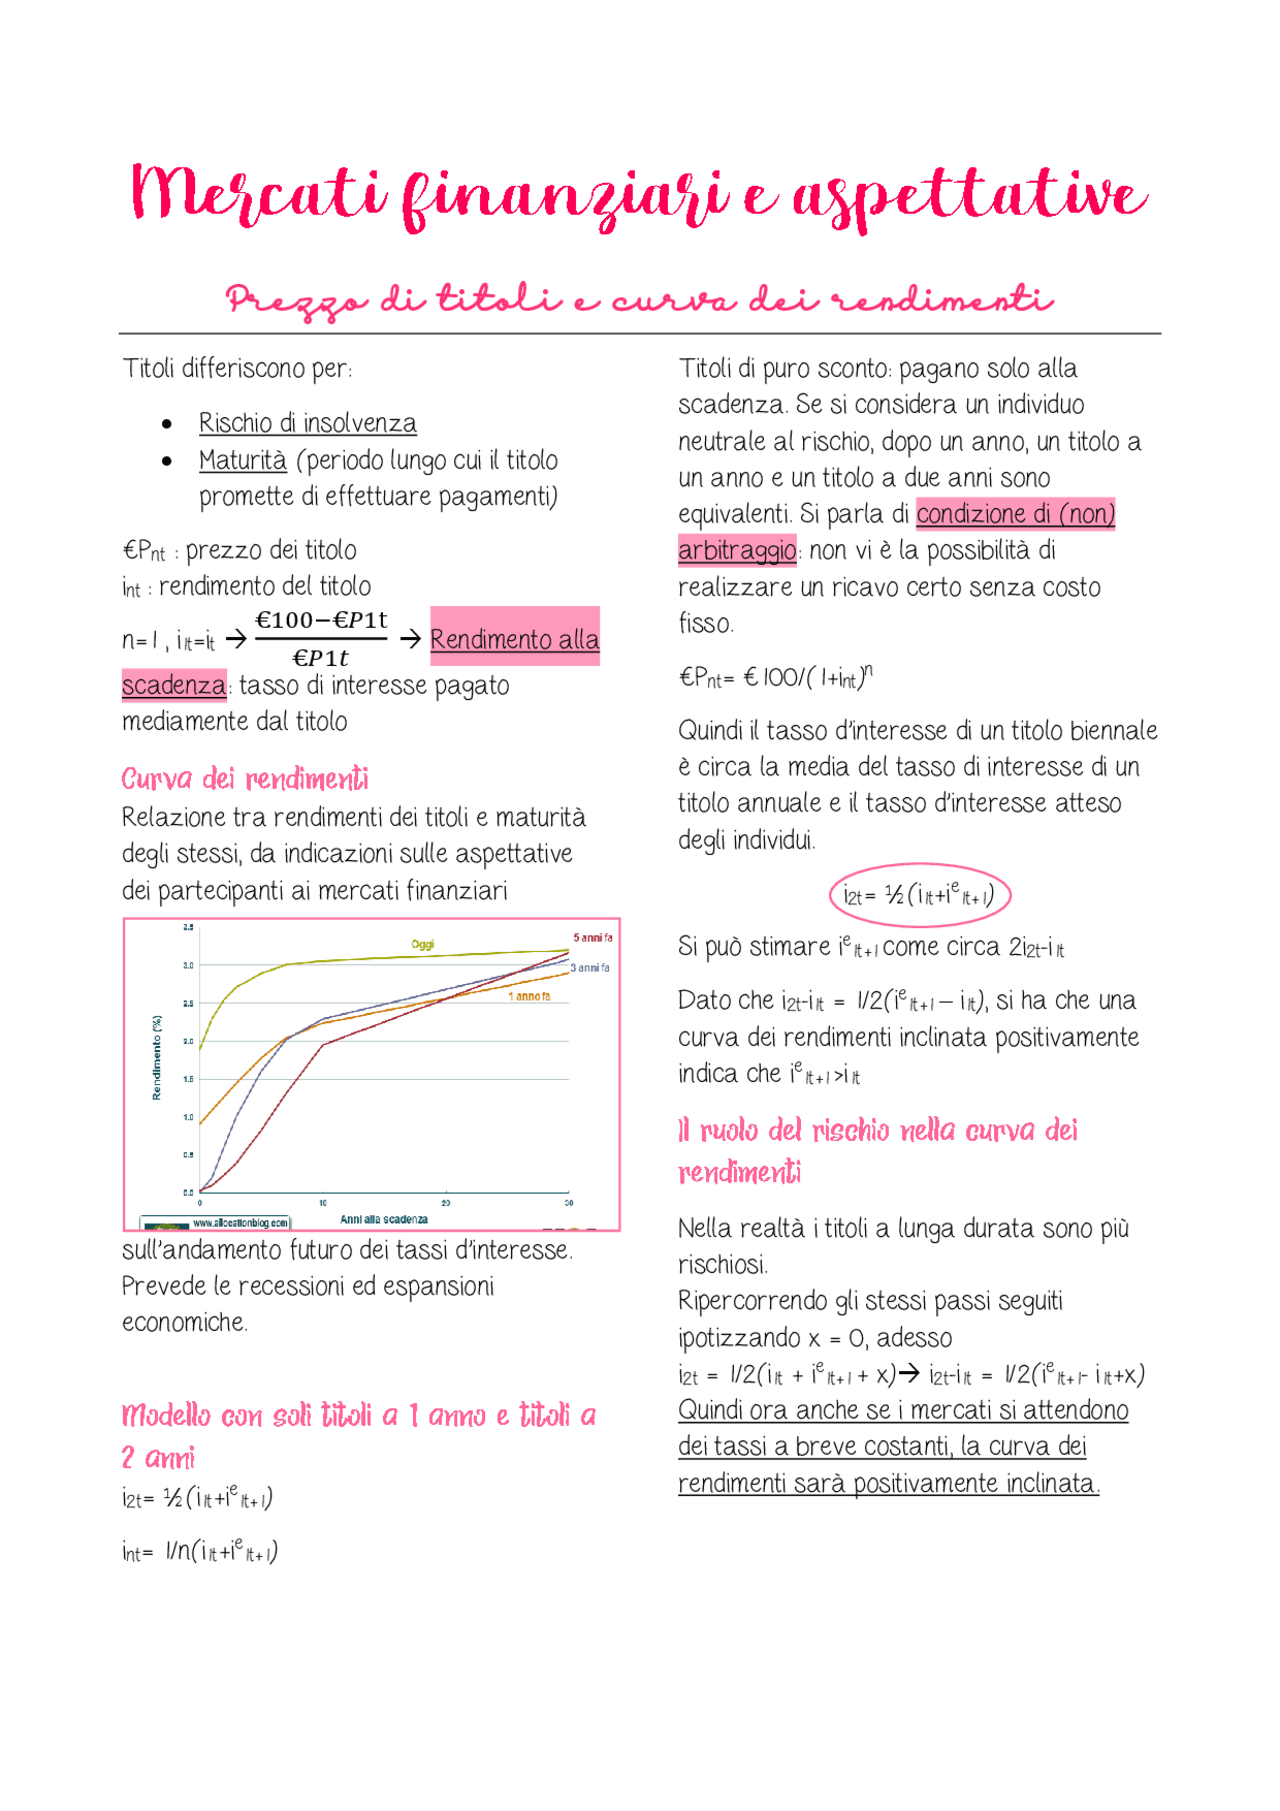 Mercati finanziari e aspettative
Prezzo di titoli e curva dei rendimenti
Titoli differiscono per:
• Rischio di insolvenza
• Maturità (periodo lungo cui il titolo
promette di effettuare pagamenti)
€Pnt : prezzo dei titolo
int : rendimento del titolo
n=1 , i1t=it → €100−€P1t / €P1t → Rendimento alla
scadenza: tasso di interesse pagato
mediamente dal titolo
Curva dei rendimenti
Relazione tra rendimenti dei titoli e maturità
degli stessi, da indicazioni sulle aspettative
dei partecipanti ai mercati finanziari
3.5
3.0
2.5
2.0
1.5
1.0
0.5
0.0
Rendimento (%)
Oggi
5 anni fa
3 anni fa
1 anno fa
0 10 20 30
www.allocationblog.com
Anni alla scadenza
sull'andamento futuro dei tassi d'interesse.
Prevede le recessioni ed espansioni
economiche.
Modello con soli titoli a 1 anno e titoli a
2 anni
i2t= ½(i1t+ie1t+1)
int= 1/n(i1t+ie1t+1)
Titoli di puro sconto: pagano solo alla
scadenza. Se si considera un individuo
neutrale al rischio, dopo un anno, un titolo a
un anno e un titolo a due anni sono
equivalenti. Si parla di condizione di (non)
arbitraggio: non vi è la possibilità di
realizzare un ricavo certo senza costo
fisso.
€Pnt= €100/(1+int)n
Quindi il tasso d'interesse di un titolo biennale
è circa la media del tasso di interesse di un
titolo annuale e il tasso d'interesse atteso
degli individui.
i2t= ½(i1t+ie1t+1)
Si può stimare ie1t+1 come circa 2i2t-i1t
Dato che i2t-i1t = 1/2(ie1t+1 – i1t), si ha che una
curva dei rendimenti inclinata positivamente
indica che ie1t+1>i1t
Il ruolo del rischio nella curva dei
rendimenti
Nella realtà i titoli a lunga durata sono più
rischiosi.
Ripercorrendo gli stessi passi seguiti
ipotizzando x = 0, adesso
i2t = 1/2(i1t + ie1t+1 + x)→ i2t-i1t = 1/2(ie1t+1- i1t+x)
Quindi ora anche se i mercati si attendono
dei tassi a breve costanti, la curva dei
rendimenti sarà positivamente inclinata.